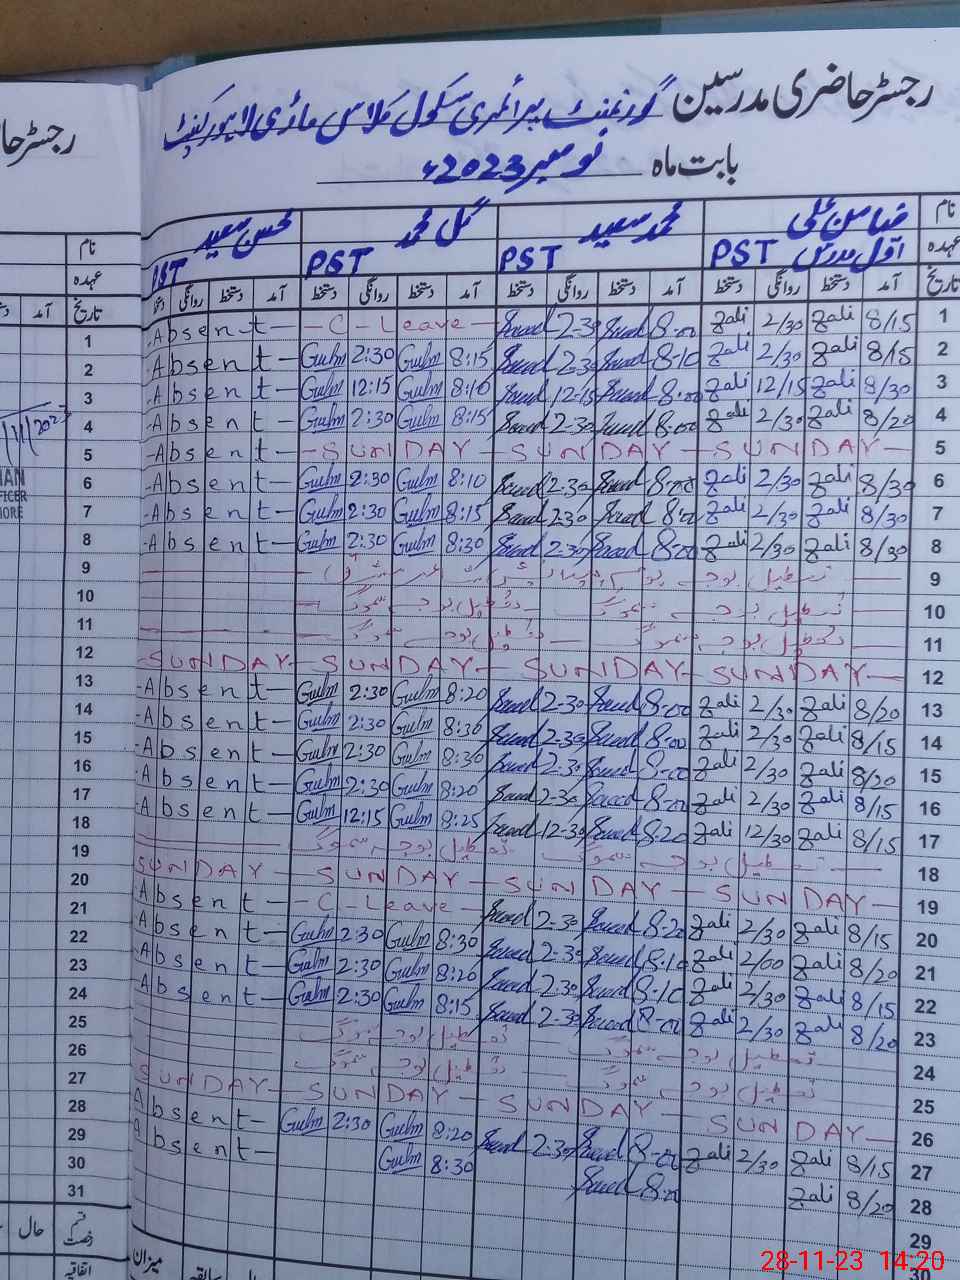 رجسٹر حاضری مدرسین گورنمنٹ پرائمری سکول ماڑی لاہور کینٹ
بابت ماہ نومبر 2023ء
نام ضامن علی محمد سعید گل محمد محسن سعید
عہدہ اول مدرس PST PST PST PST
تاریخ آمد دستخط روانگی دستخط آمد دستخط روانگی دستخط آمد دستخط روانگی دستخط آمد دستخط روانگی
1 8/15 Zali 2/30 Zali 8-00 Saeed 2-30 Saeed - C - Leave - Absent
2 8/15 Zali 2/30 Zali 8-10 Saeed 2-30 Saeed 8:15 Gulm 2:30 Gulm Absent
3 8/30 Zali 12/15 Zali 8-00 Saeed 12-15 Saeed 8:10 Gulm 12:15 Gulm Absent
4 8/20 Zali 2/30 Zali 8-00 Saeed 2-30 Saeed 8:15 Gulm 2:30 Gulm Absent
5 SUNDAY SUNDAY SUNDAY Absent
6 8/30 Zali 2/30 Zali 8-00 Saeed 2-30 Saeed 8:10 Gulm 2:30 Gulm Absent
7 8/30 Zali 2/30 Zali 8-00 Saeed 2-30 Saeed 8:15 Gulm 2:30 Gulm Absent
8 8/30 Zali 2/30 Zali 8-00 Saeed 2-30 Saeed 8:30 Gulm 2:30 Gulm Absent
9 تعطیل بوجہ
10 تعطیل بوجہ سموگ تعطیل بوجہ سموگ
11 تعطیل بوجہ سموگ تعطیل بوجہ سموگ
12 SUNDAY SUNDAY SUNDAY SUNDAY
13 8/20 Zali 2/30 Zali 8-00 Saeed 2-30 Saeed 8:20 Gulm 2:30 Gulm Absent
14 8/15 Zali 2/30 Zali 8-00 Saeed 2-30 Saeed 8:30 Gulm 2:30 Gulm Absent
15 8/20 Zali 2/30 Zali 8-00 Saeed 2-30 Saeed 8:30 Gulm 2:30 Gulm Absent
16 8/15 Zali 2/30 Zali 8-00 Saeed 2-30 Saeed 8:20 Gulm 2:30 Gulm Absent
17 8/15 Zali 12/30 Zali 8-20 Saeed 12-30 Saeed 8:25 Gulm 12:15 Gulm Absent
18 تعطیل بوجہ سموگ تعطیل بوجہ سموگ
19 SUNDAY SUNDAY SUNDAY SUNDAY
20 8/15 Zali 2/30 Zali 8-20 Saeed 2-30 Saeed - C - Leave - Absent
21 8/20 Zali 2/00 Zali 8-10 Saeed 2-30 Saeed 8:30 Gulm 2:30 Gulm Absent
22 8/15 Zali 2/30 Zali 8-10 Saeed 2-30 Saeed 8:20 Gulm 2:30 Gulm Absent
23 8/20 Zali 2/30 Zali 8-00 Saeed 2-30 Saeed 8:15 Gulm 2:30 Gulm Absent
24 تعطیل بوجہ سموگ تعطیل بوجہ سموگ
25 تعطیل بوجہ سموگ تعطیل بوجہ سموگ
26 SUNDAY SUNDAY SUNDAY SUNDAY
27 8/15 Zali 2/30 Zali 8-00 Saeed 2-30 Saeed 8:20 Gulm 2:30 Gulm Absent
28 8/20 Zali 8-00 Saeed 8:30 Gulm Absent
29
30
میزان
رجسٹر حا
نام
عہدہ
تاریخ آمد
1
2
3
4
5
6
7
8
9
10
11
12
13
14
15
16
17
18
19
20
21
22
23
24
25
26
27
28
29
30
31
قسم رخصت حال
اتفاقیہ
28-11-23 14:20